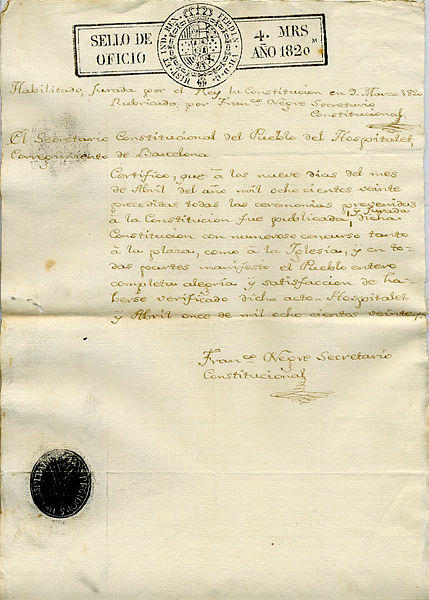 SELLO DE OFICIO
4. MRS
AÑO 1820
Habilitado, jurada por el Rey la Constitucion en 9. Marzo 1820
Rubricado, por Franco Negre Secretario
Constitucional
El Secretario Constitucional del Pueblo del Hospitalet,
Corregimiento de Barcelona
Certifico, que á los nueve dias del mes
de Abril del año mil ocho cientos veinte
precedidas todas las ceremonias prevenidas
á la Constitucion fue publicada, y Jurada dicha
Constitucion con numeroso concurso tanto
á la plaza, como á la Iglesia, y en to-
das partes manifestó el Pueblo entero
completa alegria y satisfaccion de ha-
berse verificado dicho acto- Hospitalet
y Abril once de mil ocho cientos veinte,
Franco Negre Secretario
Constitucional